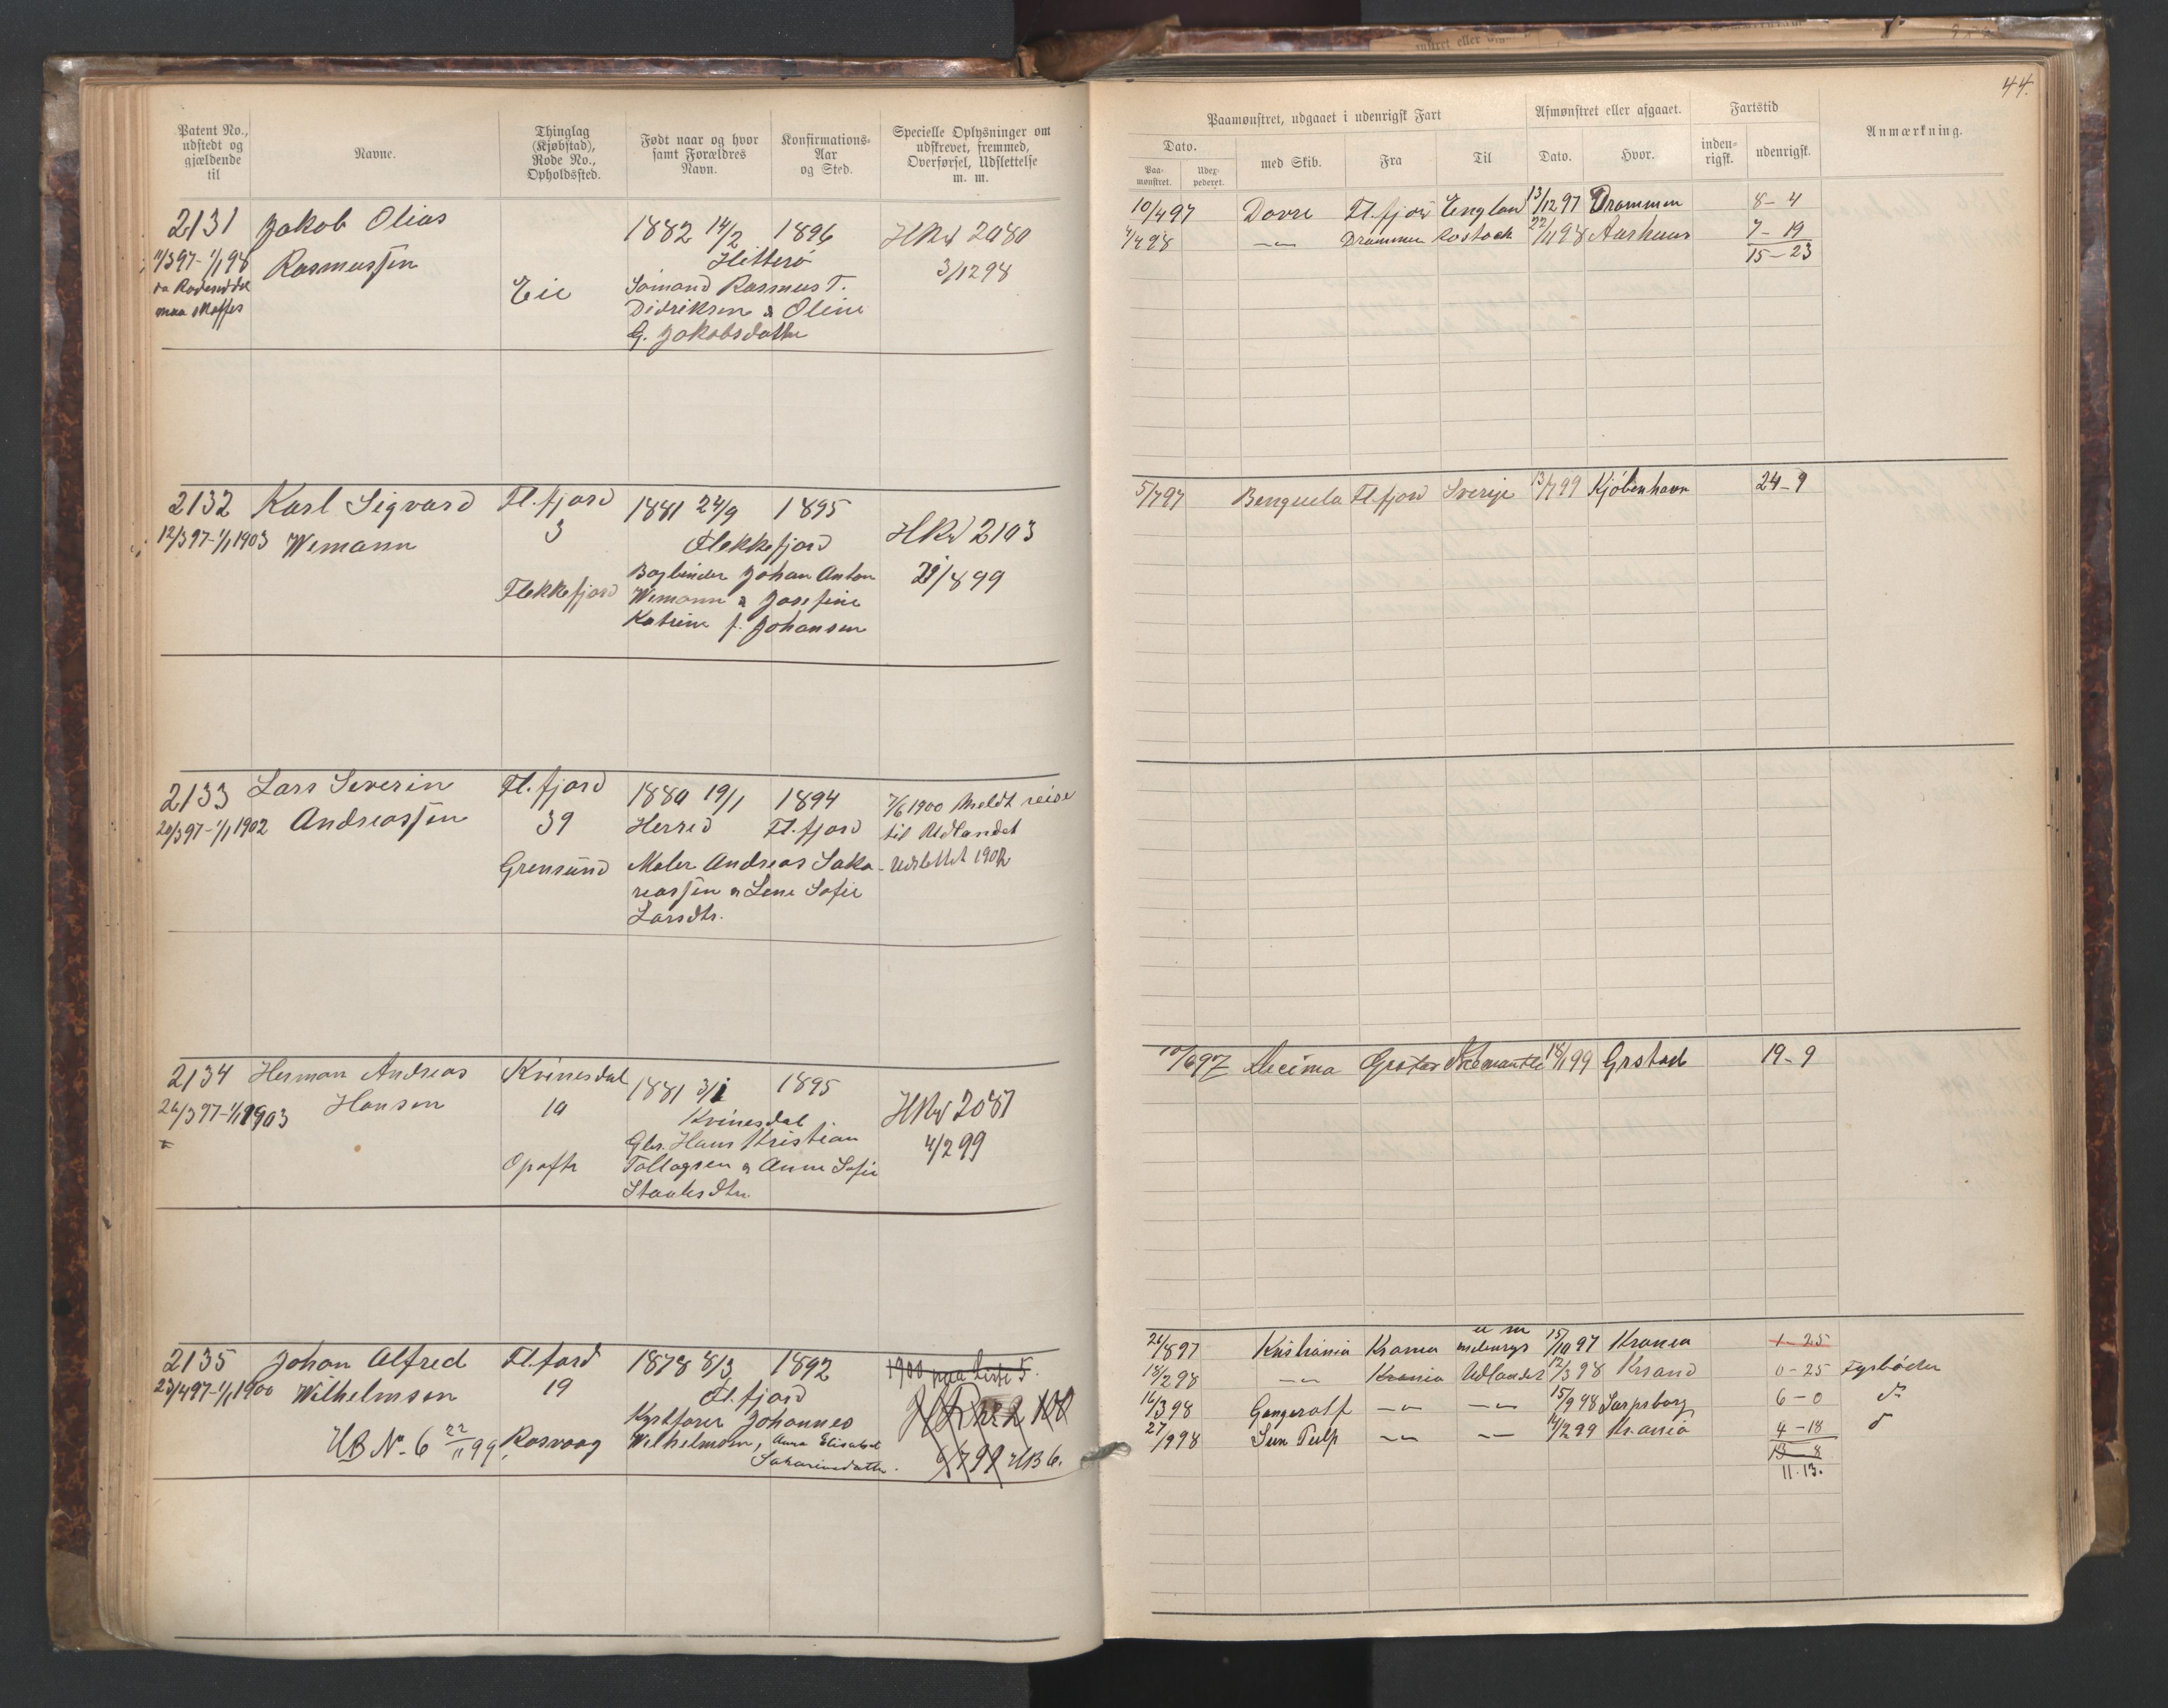 44.
Patent No., udstedt og gjældende til
Navne.
Thinglag (Kjøbstad), Rode No., Opholdssted.
Født naar og hvor samt Forældres Navn.
Konfirmations-Aar og Sted.
Specielle Oplysninger om udskrevet, fremmed, Overførsel, Udslettelse m. m.
Paamønstret, udgaaet i udenrigsk Fart
Dato.
Paa-mønstret.
Udex-pederet.
med Skib.
Fra
Til
Afmønstret eller afgaaet.
Dato.
Hvor.
Fartstid
inden-rigsk.
udenrigsk.
Anmærkning.
2131 Jakob Olias 1882 14/2 1896 HRw 2080
11/3 97 - 1/1 98 Rasmussen Hitterø 3/12 98
maa skaffes Eie Sømand Rasmus T.
Didriksen & Oline
G. Jakobsdatter
10/4 97 Dovre Fl.fjord England 13/12 97 Drammen 8 - 4
4/4 98 -"- Drammen Rostock 22/11 98 Aarhuus 7 - 19
15 - 23
2132 Karl Sigvard Fl.fjord 1881 24/9 1895
12/3 97 - 1/1 1903 Wemann 3 Flekkefjord HRw 2103
Flekkefjord Bogbinder Johan Anton 21/8 99
Wemann & Josefine
Katrine f. Johansen
5/7 97 Benguela Fl.fjord Sverije 13/7 99 Kjöbenhavn 24 - 9
2133 Lars Severin Fl.fjord 1880 19/1 1894 7/6 1900 Meldt reise
20/3 97 - 1/1 1902 Andreassen 39 Herred Fl.fjord til Udlandet
Grensund Maler Andreas Saka- Udslettet 1902
reassen & Lene Sofie
Larsdtr.
2134 Herman Andreas Kvinesdal 1881 3/1 1895
26/3 97 - 1/1 1903 Hansen 10 Kvinesdal HRw 2087
Gbr. Hans Kristian 4/2 99
Opofte Tollagsen & Anne Sofie
Staalesdtr.
10/6 97 Decima 18/1 99 Grstad 19 - 9
2135 Johan Alfred Fl.fjord 1878 8/3 1892 1900 paa liste 5.
23/4 97 - 1/1 1900 Wilhelmsen 19 Fl.fjord
Kystfarer Johannes
UB No. 6 22/11 99 Rosvaag Wilhelmsen, Anna Elisabet
Sakariasdatter. UB 6.
26/8 97 Kristiania Krania 15/10 97 Krania 1 - 25
18/2 98 -"- Krania Udlandet 12/3 98 Krsand 0 - 25 Fyrböder
16/3 98 Gangerolf -"- -"- 15/9 98 Sarpsborg 6 - 0 do
27/9 98 Sun Tulp -"- -"- 14/2 99 Kr.ania 4 - 18 do
13 - 8
11. 13.